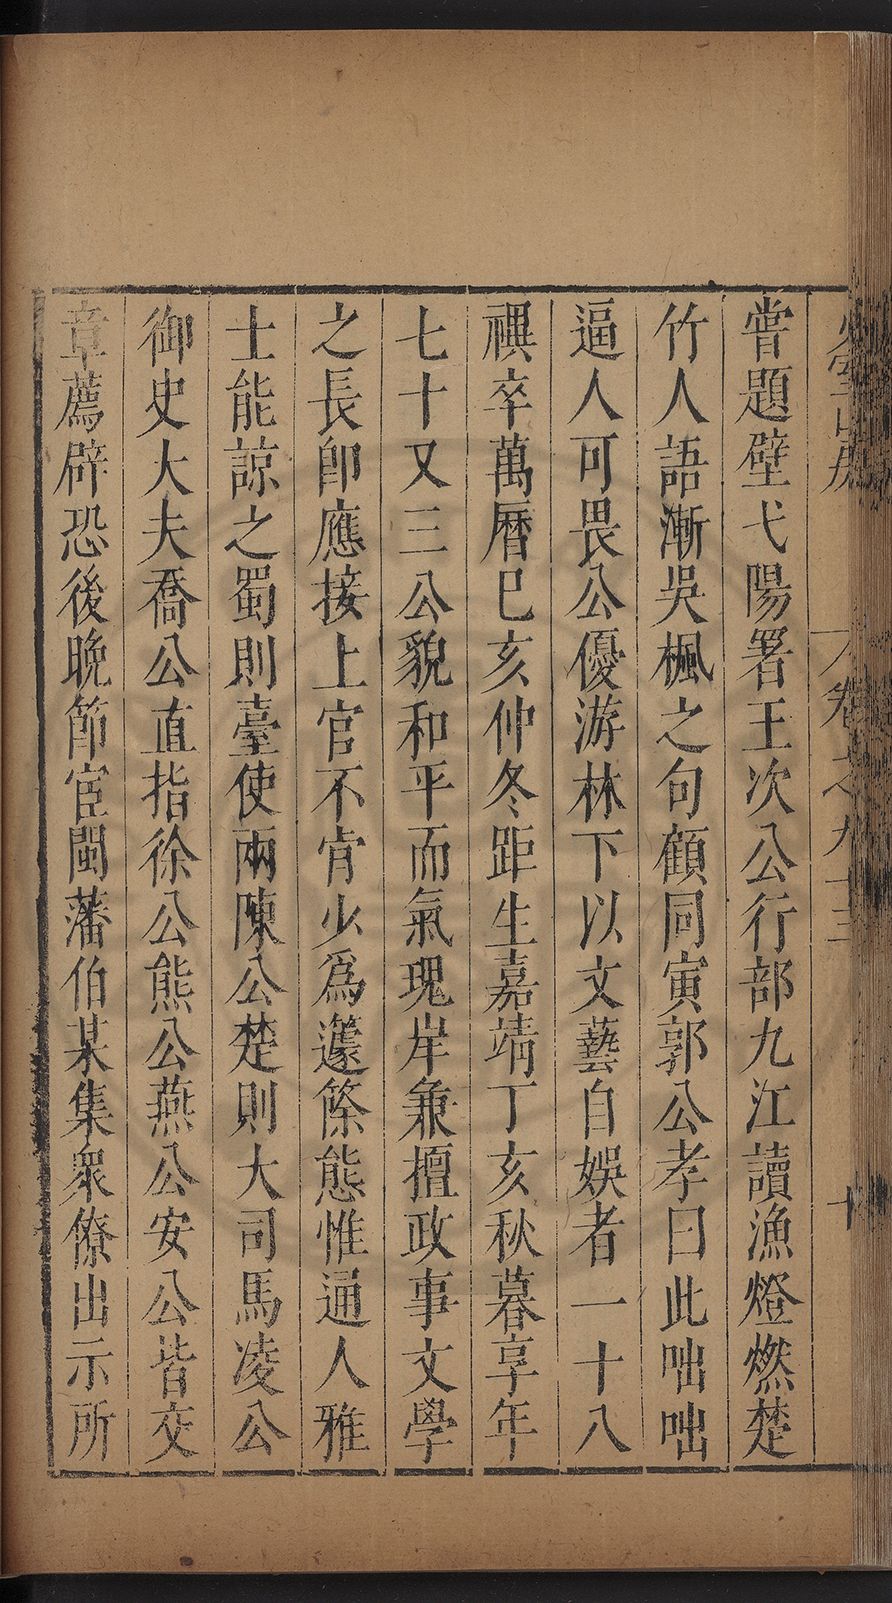 卷之九十三
十
嘗題壁弋陽署王次公行部九江讀漁燈燃楚
竹人語漸吳楓之句顧同寅郭公孝曰此咄咄
逼人可畏公優游林下以文藝自娛者一十八
禩卒萬曆巳亥仲冬距生嘉靖丁亥秋暮享年
七十又三公貌和平而氣瑰岸兼擅政事文學
之長卽應接上官不肯少爲籧篨態惟通人雅
士能諒之蜀則臺使兩陳公楚則大司馬凌公
御史大夫喬公直指徐公熊公燕公安公皆交
章薦辟恐後晚節宦閩藩伯某集衆僚出示所